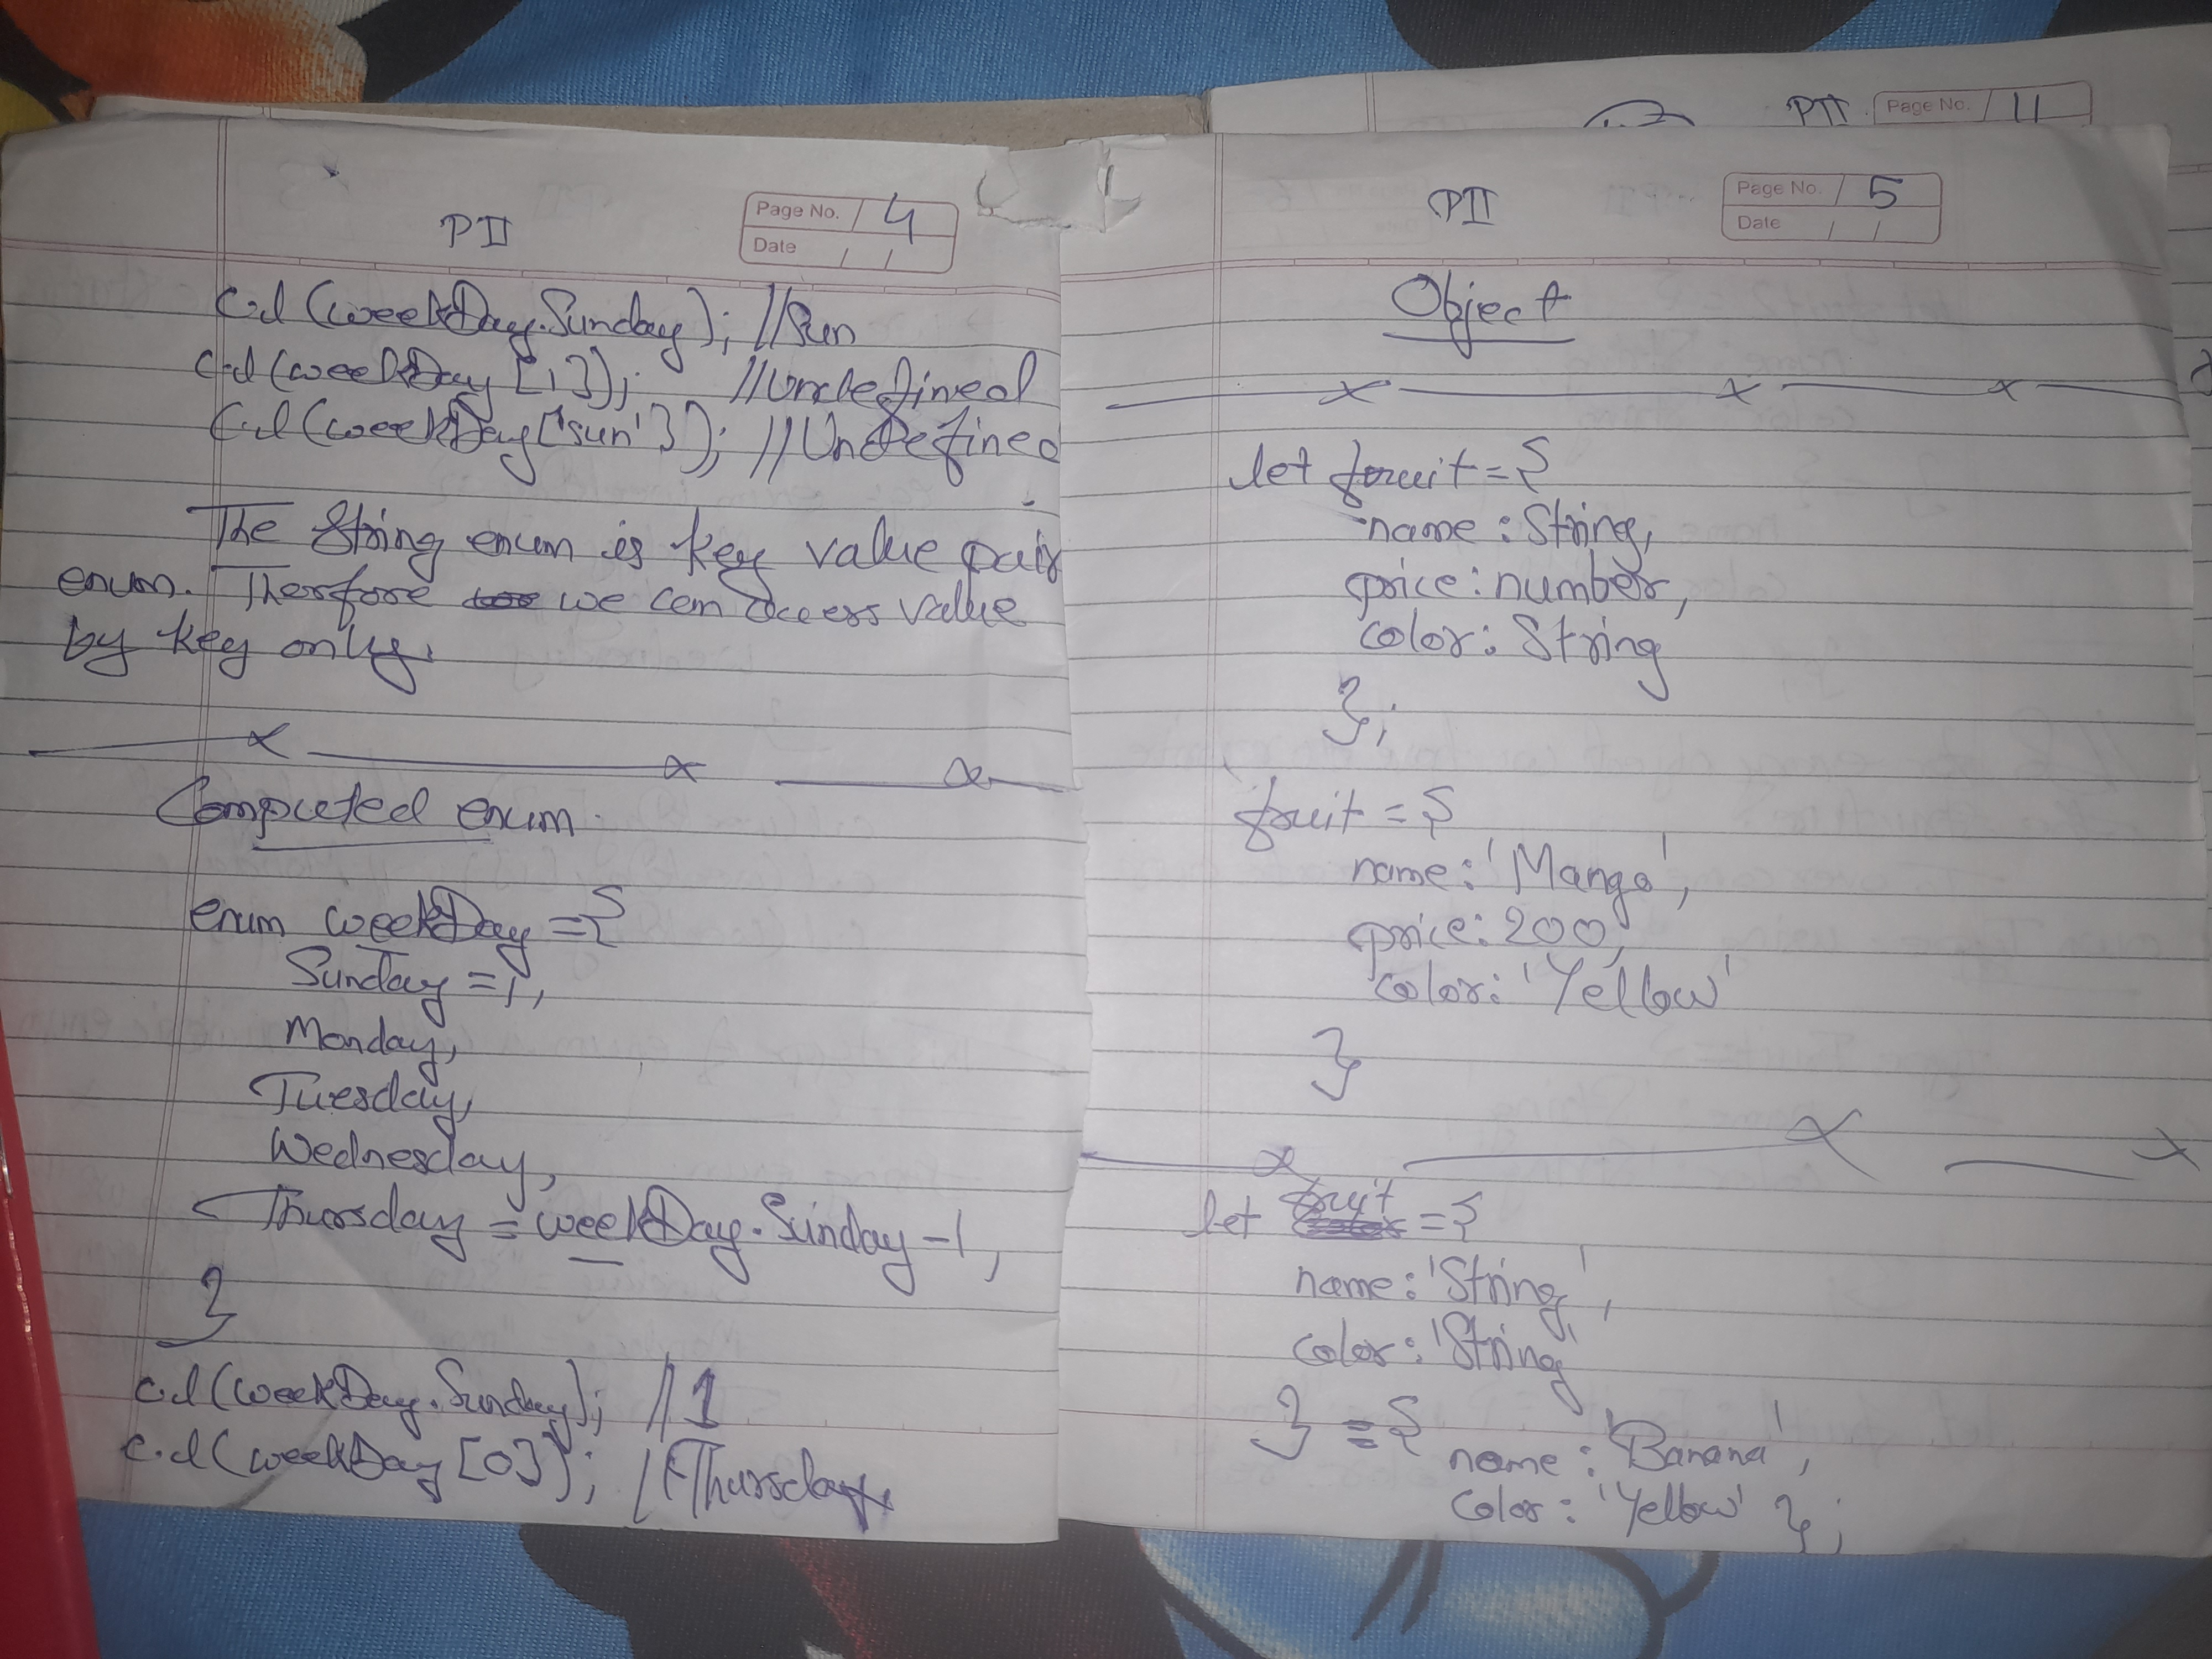 PII
Page No. 4
Date / /
c.l (weekDay.Sunday); //Sun
c.l (weekDay [1]); //Undefined
c.l (weekDay['sun']); //Undefined
The String enum is key value pair
enum. Therfore we can access value
by key only.
Computed enum.
enum weekDay = {
Sunday = 1,
Monday,
Tuesday,
Wednesday,
Thursday = weekDay.Sunday - 1,
}
c.l (weekDay.Sunday); //1
c.l (weekDay [0]); //Thursday
PII Page No. 11
PII
Page No. 5
Date / /
Object
let fruit = {
name : String,
price : number,
color : String
};
fruit = {
name : 'Mango',
price : 200,
color : 'Yellow'
}
let fruit = {
name : 'String',
color : 'String'
} = { name : 'Banana',
color : 'Yellow' };